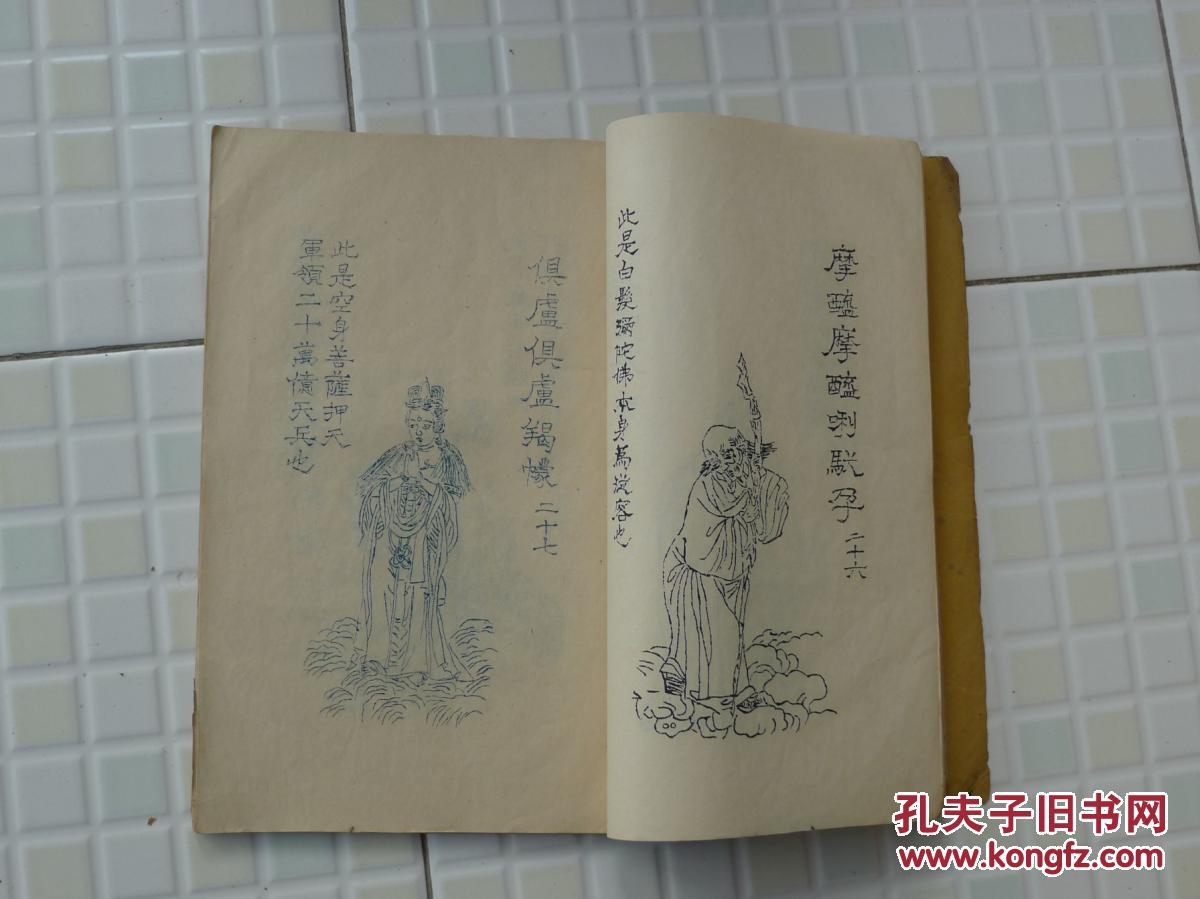 摩醯摩醯唎馱孕 二十六
此是白髮彌陀佛本身為
俱盧俱盧羯懞 二十七
此是空身菩薩押天
軍領二十萬億天兵也
孔夫子旧书网
www.kongfz.com